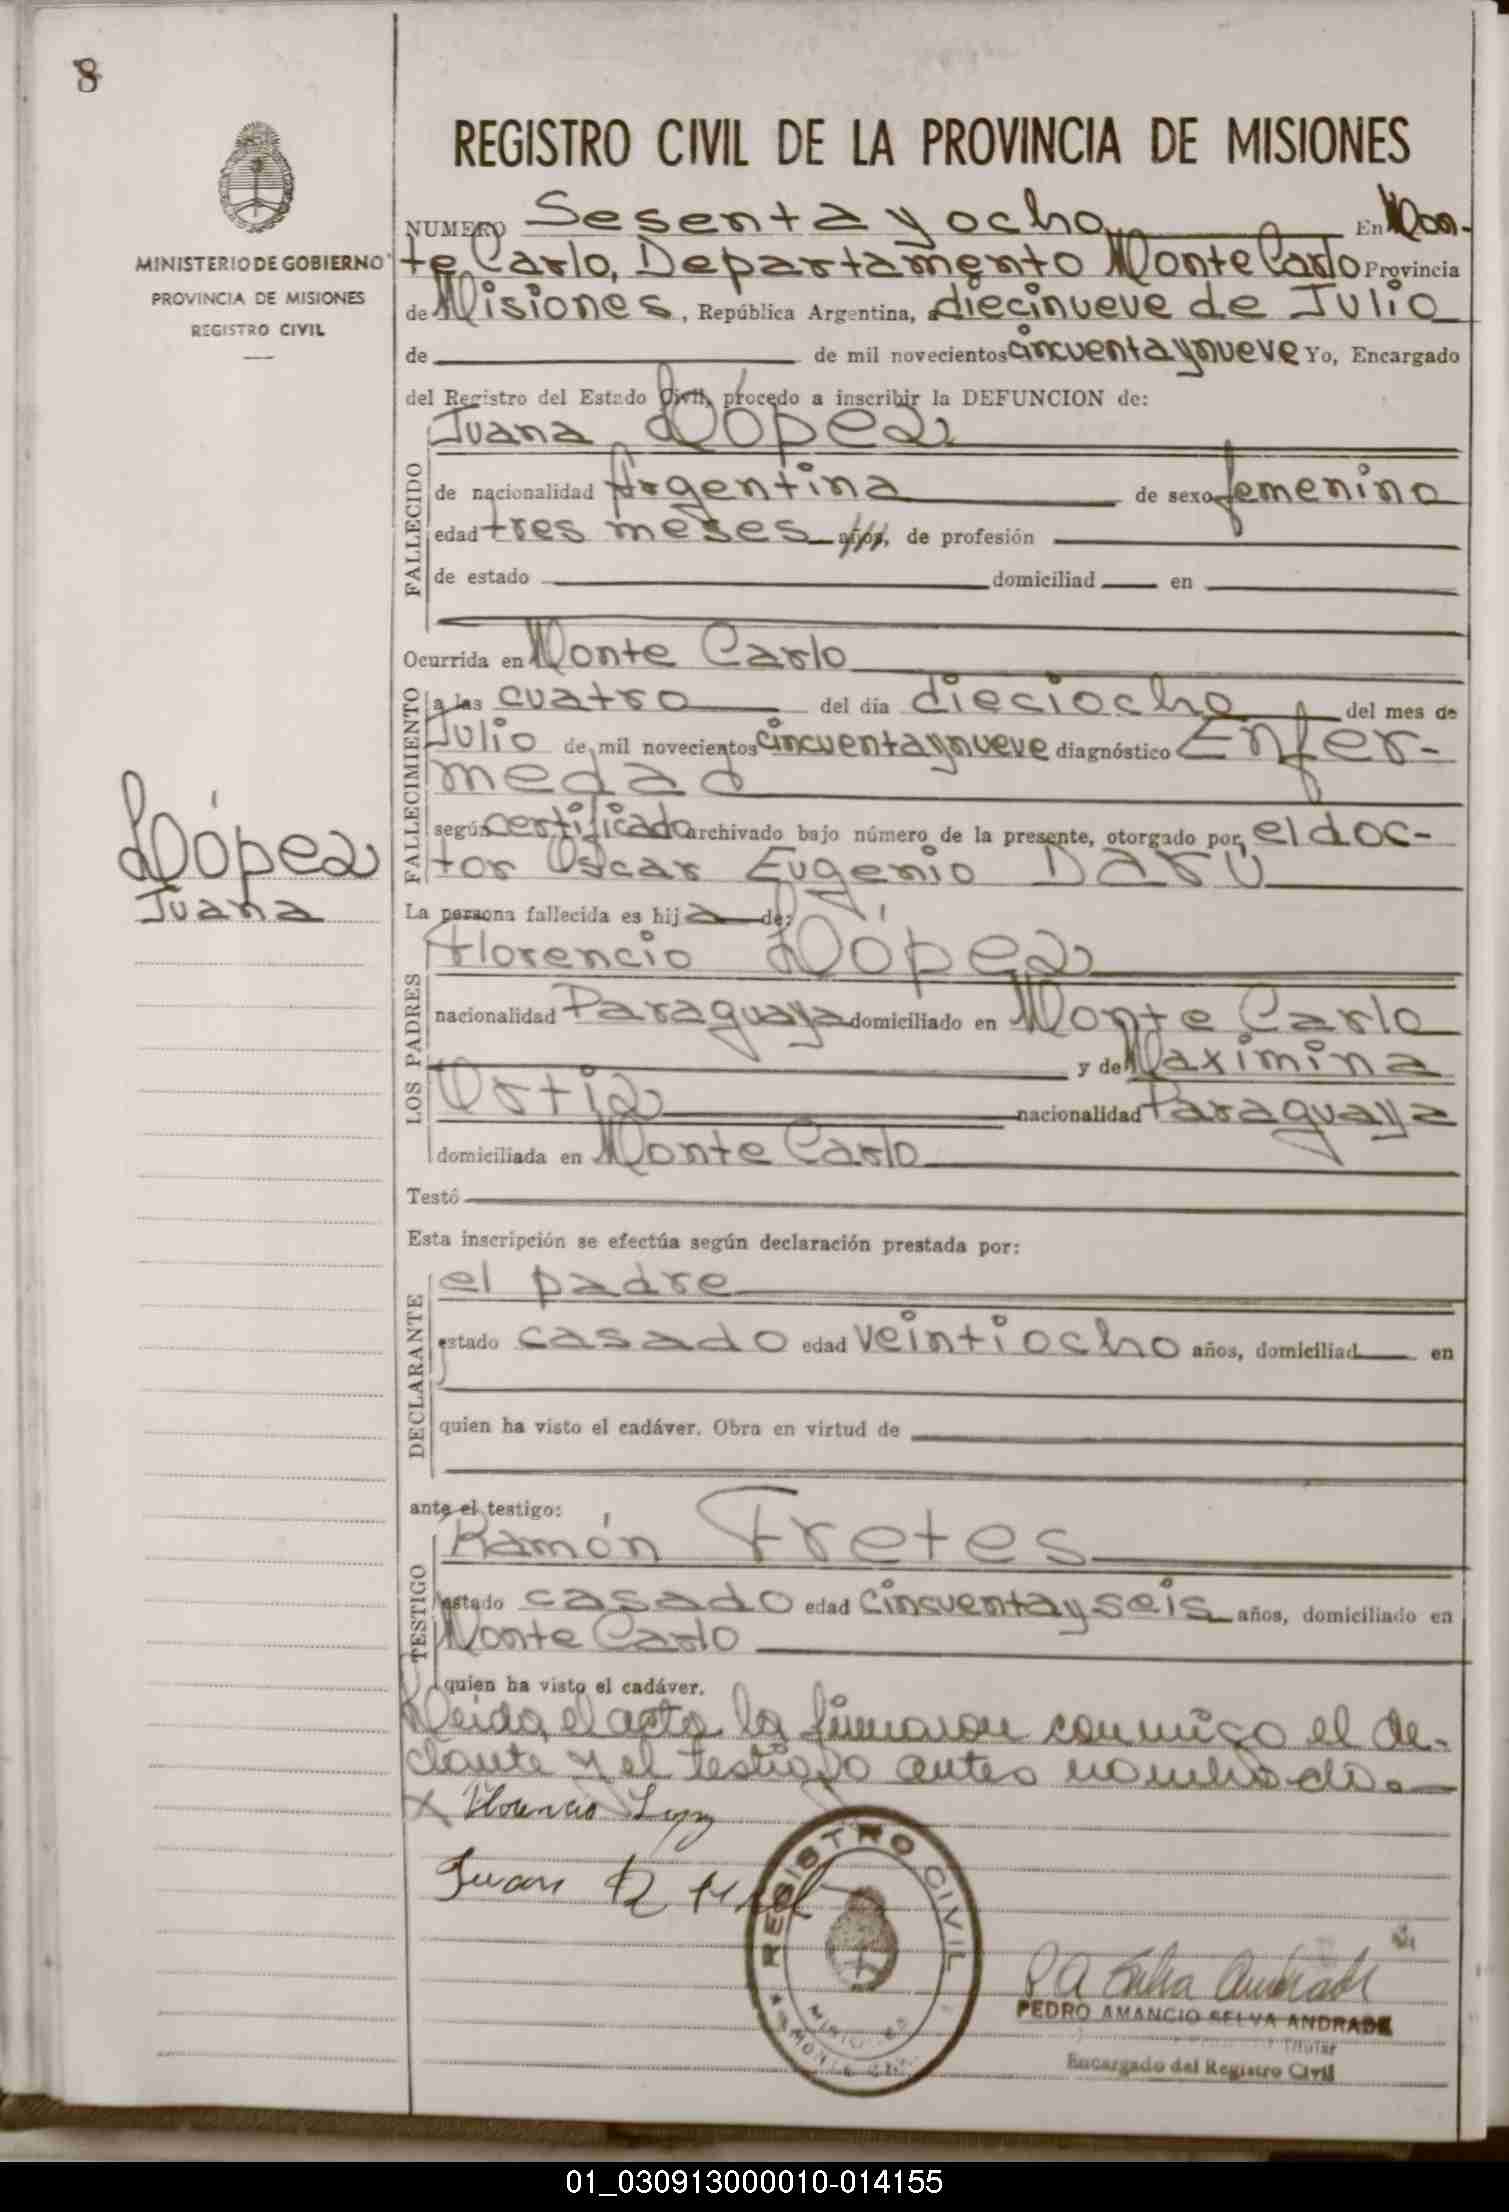 8
MINISTERIO DE GOBIERNO
PROVINCIA DE MISIONES
REGISTRO CIVIL
López
Juana
REGISTRO CIVIL DE LA PROVINCIA DE MISIONES
NUMERO Sesenta y ocho En Mon-
te Carlo, Departamento Monte Carlo Provincia
de Misiones, República Argentina, a diecinueve de Julio
de de mil novecientos cincuenta y nueve Yo, Encargado
del Registro del Estado Civil, procedo a inscribir la DEFUNCION de:
Juana López
FALLECIDO
de nacionalidad Argentina de sexo femenino
edad tres meses años, de profesión
de estado domiciliad en
Ocurrida en Monte Carlo
FALLECIMIENTO
a las cuatro del día dieciocho del mes de
Julio de mil novecientos cincuenta y nueve diagnóstico Enfer-
medad
según certificado archivado bajo número de la presente, otorgado por el doc-
tor Oscar Eugenio DARU
La persona fallecida es hija de:
Florencio López
LOS PADRES
nacionalidad Paraguaya domiciliado en Monte Carlo
y de Maximina
Ortiz nacionalidad Paraguaya
domiciliada en Monte Carlo
Testó
Esta inscripción se efectúa según declaración prestada por:
el padre
DECLARANTE
estado casado edad veintiocho años, domiciliad en
quien ha visto el cadáver. Obra en virtud de
ante el testigo:
Ramón Fretes
TESTIGO
estado casado edad cincuenta y seis años, domiciliado en
Monte Carlo
quien ha visto el cadáver.
Leida el acta la firmaron conmigo el de-
clante y el testigo antes nombrado.
x Florencio Lopz
Juan
REGISTRO CIVIL
MISIONES
MONTE
P A Selva Andrade
PEDRO AMANCIO SELVA ANDRADE
Titular
Encargado del Registro Civil
01_030913000010-014155